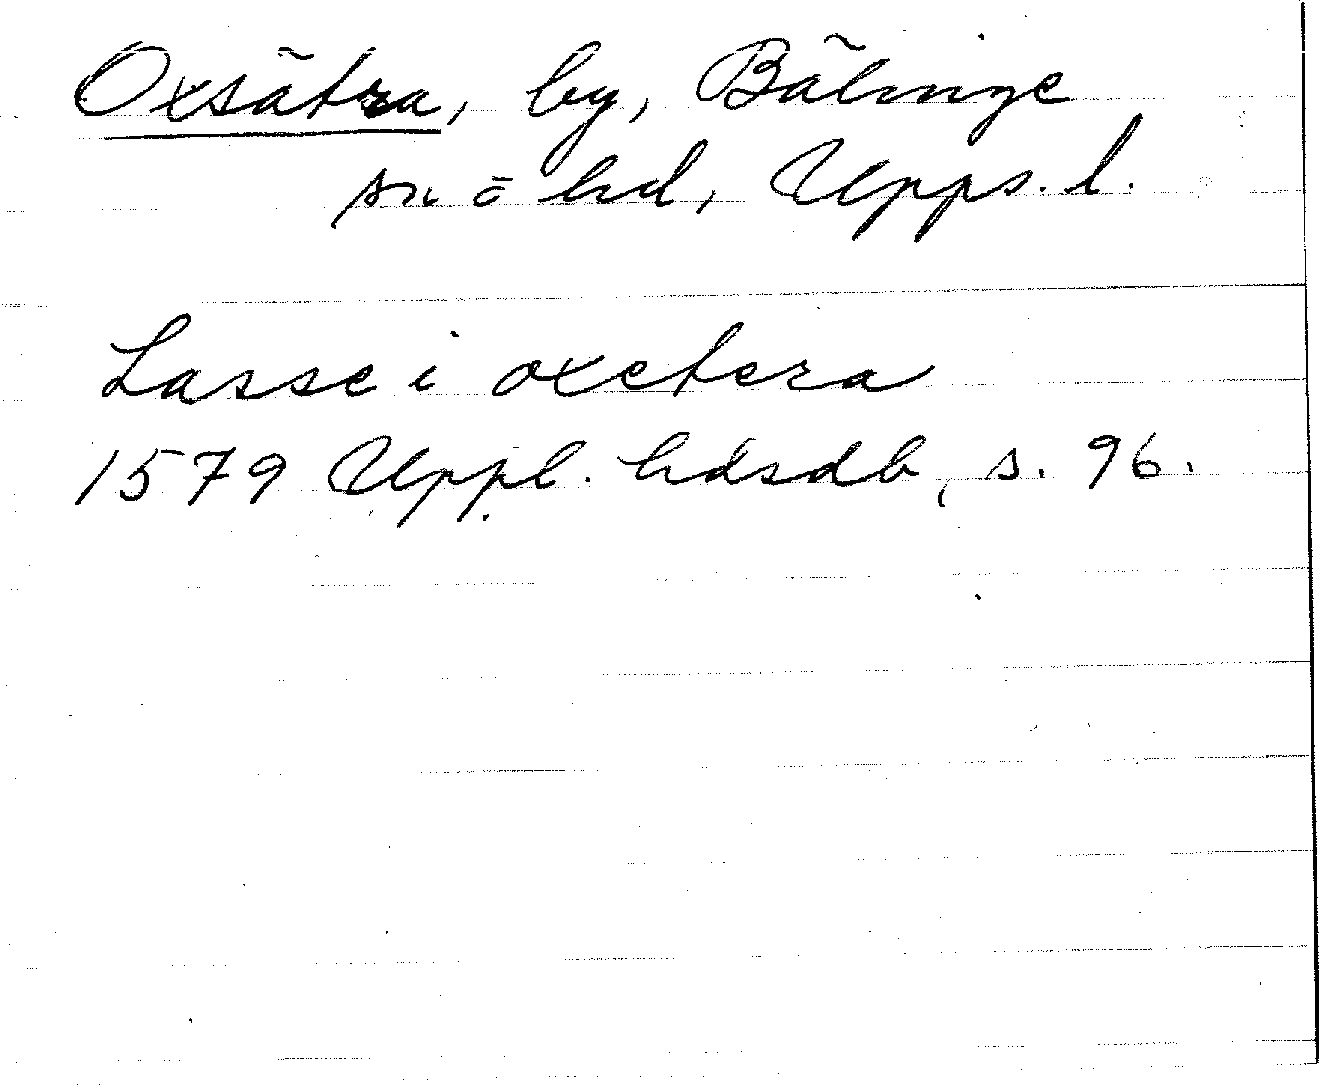 Oxsätra, by, Bälinge
sn o hd, Upps. l.
Lasse i oxetera
1579 Uppl. hdsdb, s. 96.